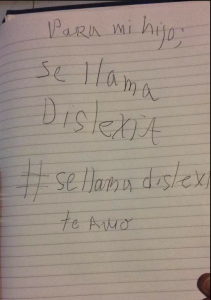 Para mi hijo;
se llama
Dislexia
#sellama dislexi
te Amo